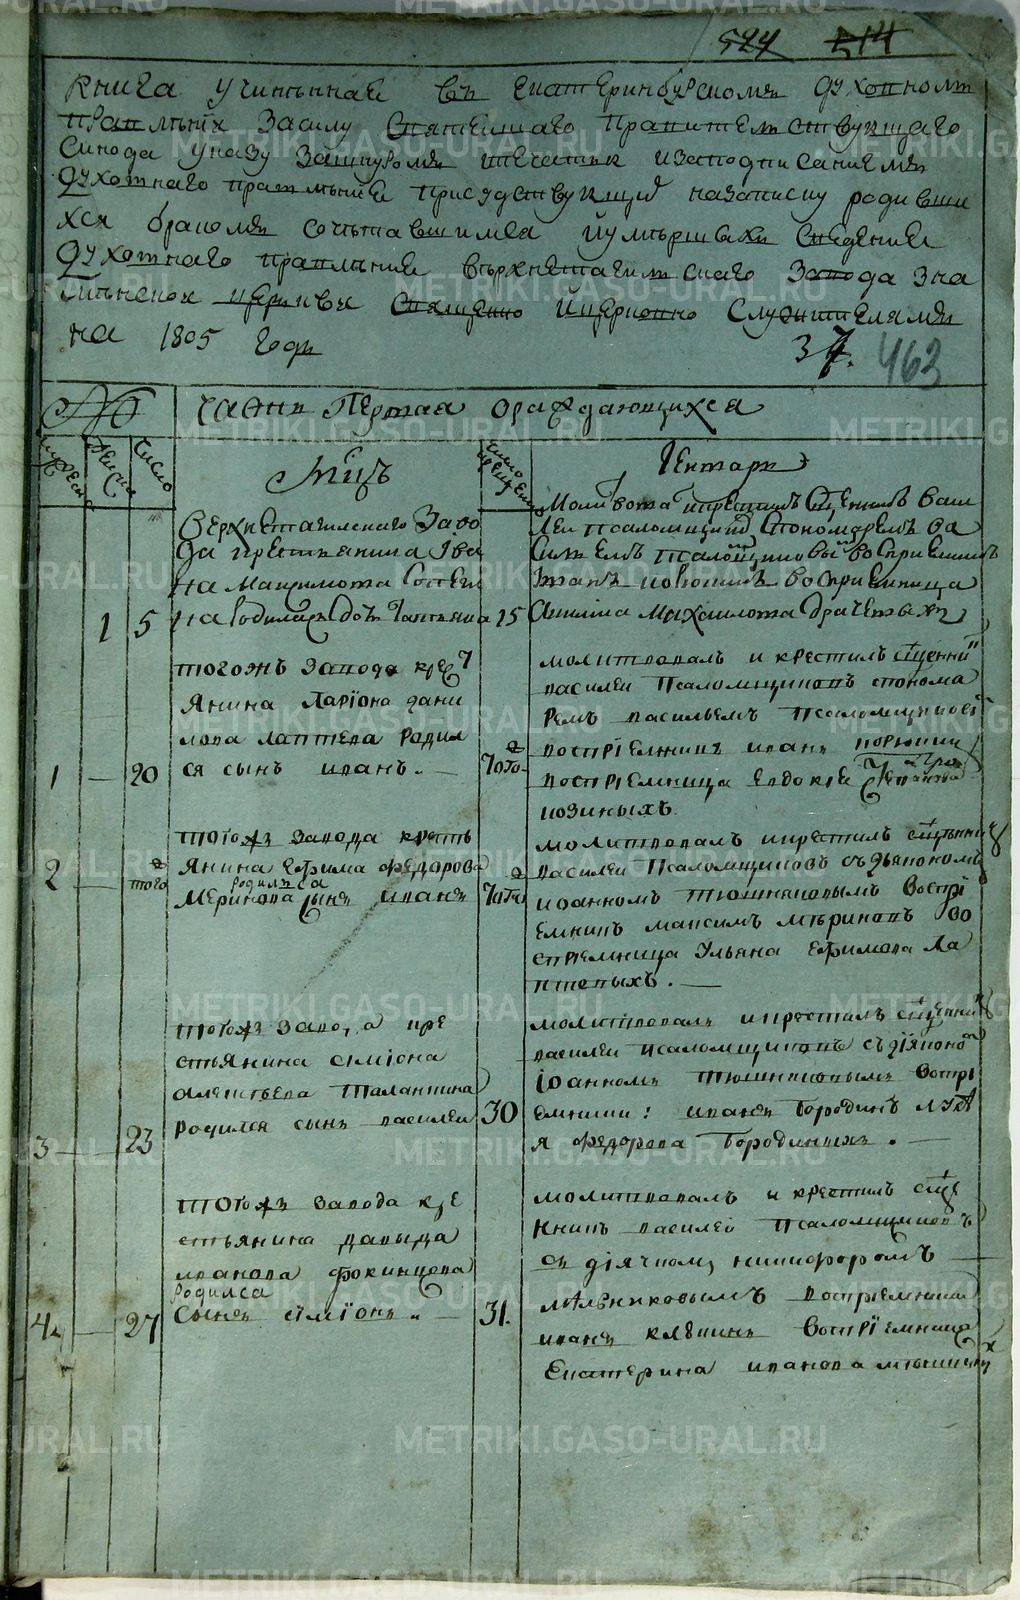 524 514
Книга учиненная въ Екатеринбурскомъ духовном
правленїи засилу Святейшаго правительствующаго
Синода указу зашнуромъ печатью изаподписаниемъ
Духовнаго правления присудствующи назаписку родивши
хся бракомъ сочетавшимся йумершихъ Сведение
Духовнаго правления верхнетагилскаго Завода зна
менской церквы Священно йцерковно Служителямъ
на 1805 годъ
37. 463
часть Первая ораждающихся
Число
Мцъ
Генваря
Верхнетагилскаго Заво
да крестьянина Iва
на Максимова
1 5 на родилась дочь Татьяна 15
Молитвова и крестилъ Сщенникъ Васи
леи псаломщиковъ Спономаремъ ва
Силемъ псаломщиковы восприемникъ
восприемница
Акилина Михаилова
тогожъ завода крес
янина Ларiона дани
лова Лаптева родил
1 20 ся сынъ иванъ. тогож
молитвовалъ и крестилъ сщенни
василеи псаломщиковъ спонома
ремъ васильемъ псаломщиковы
воспрiемникъ иванъ
воспрiемница евдокiе
козиныхъ
тогожъ завода кресть
янина Ефима Федорова
родилъся
2 того Мернкова сынъ иванъ того
молитвовалъ икрестилъ сщенни
василеи псаломщиковъ съдьякономъ
иоанномъ тюшняковымъ воспрї
емникъ максимъ мѣриковъ во
спрiемница Ульяна Ефимова ла
птевыхъ.
тогожъ завода кре
стьянина сiмiона
алексѣева Таланкина
3 23 родился сынъ василеи 30
молитвовалъ икрестилъ сщенни
василеи псаломщиковъ съдїяконо
iоанномъ тюшняковымъ воспрї
емники: иванъ бородинъ
я федорова бородиныхъ.
тогожъ завода кре
стьянина давыда
иванова фокинцова
родился
4 27 сынъ сїмїонъ. 31.
молитвовалъ и крестилъ сще
нникъ василей псаломщиковъ
съ дiячкомъ никифоромъ
мѣльниковымъ воспрiемники
иванъ клепинъ воспрїемница
Екатерина иванова